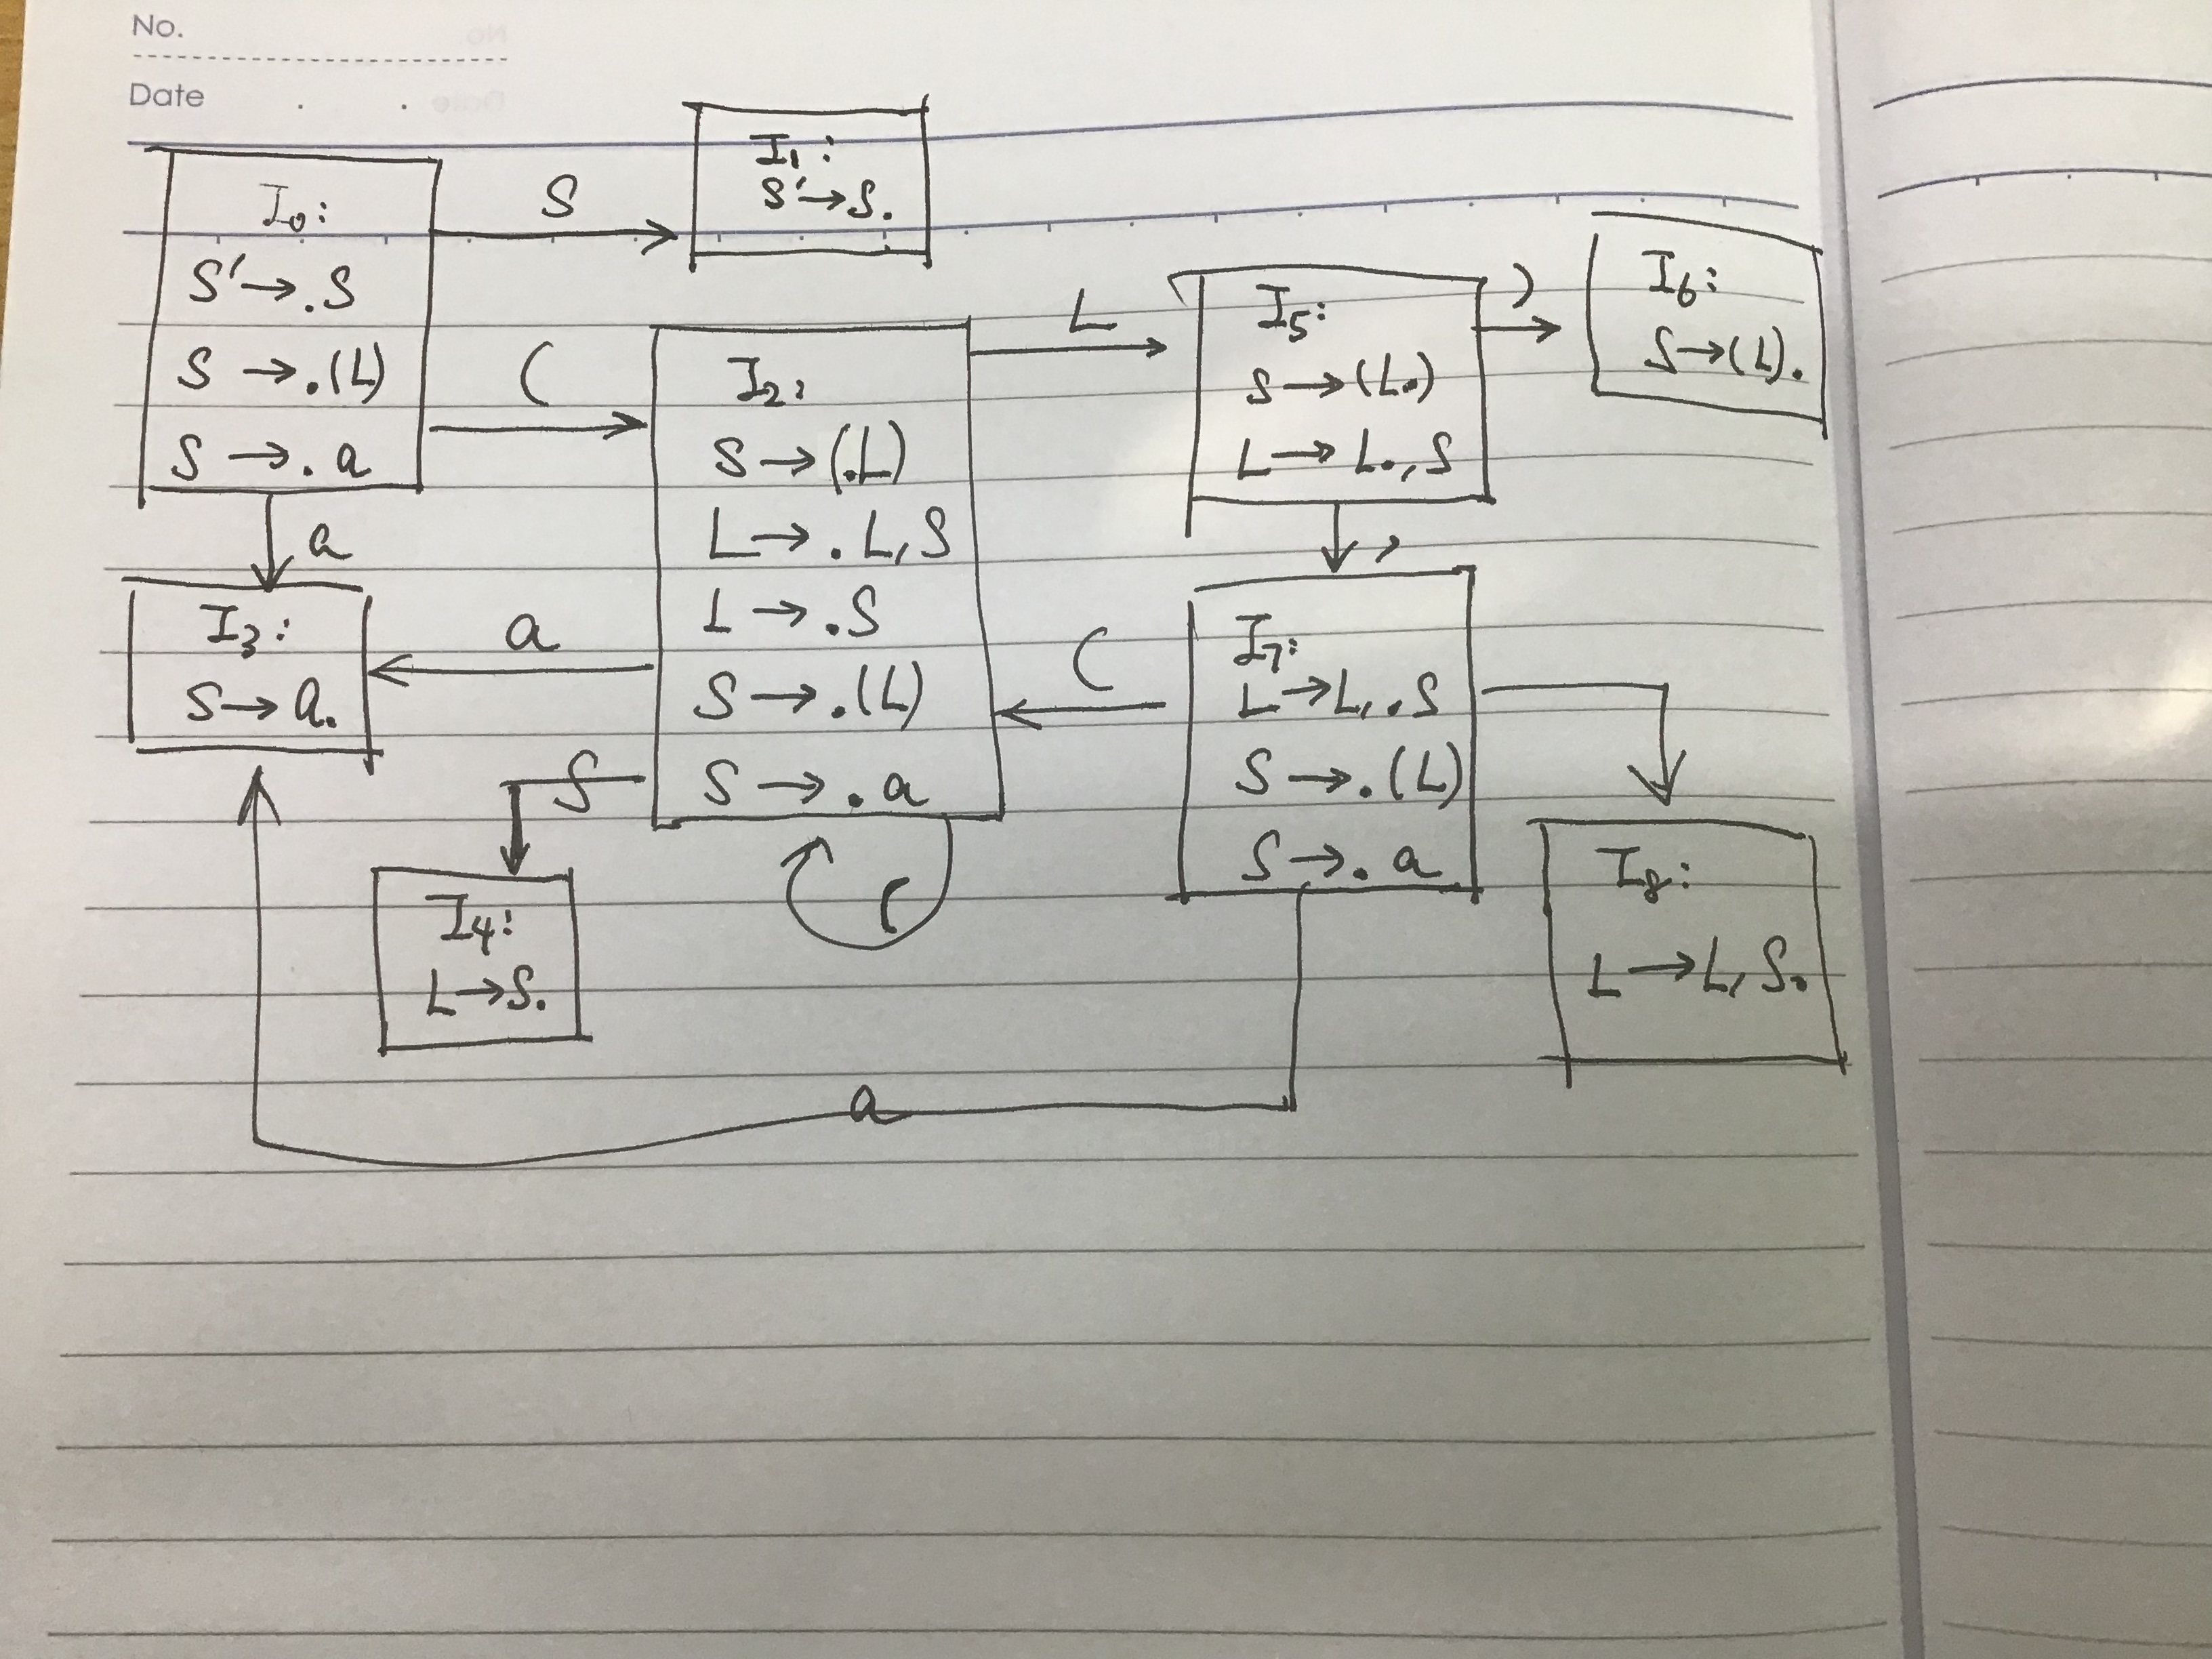 No.
Date
I₀:
S'→.S
S→.(L)
S→.a
S
I₁:
S'→S.
(
a
I₂:
S→(.L)
L→.L,S
L→.S
S→.(L)
S→.a
L
I₅:
S→(L.)
L→L.,S
)
I₆:
S→(L).
,
I₃:
S→a.
a
S
(
I₄:
L→S.
(
I₇:
L→L,.S
S→.(L)
S→.a
I₈:
L→L,S.
a